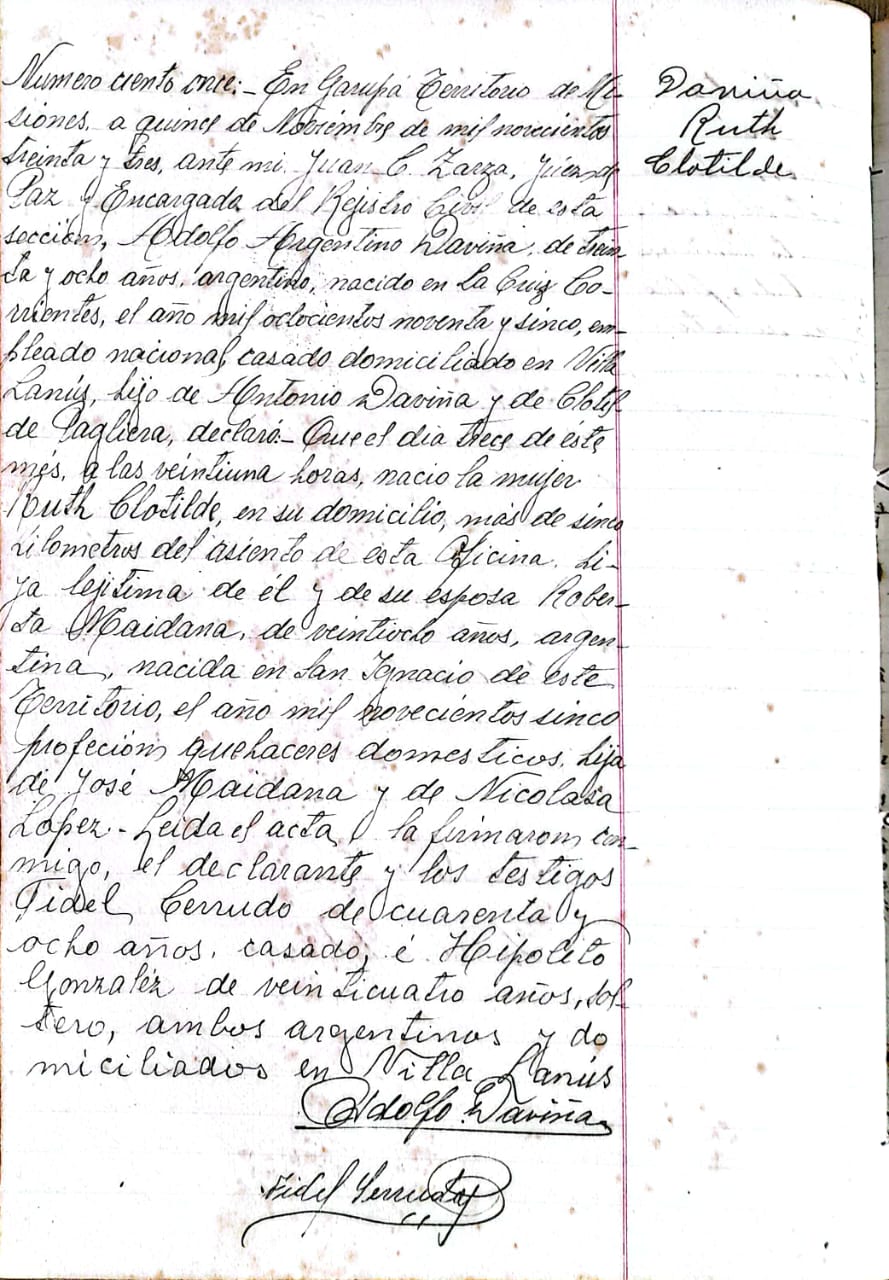 Numero ciento once:- En Garupá Territorio de Mi-
siones, a quince de Noviembre de mil novecientos
treinta y tres, ante mi Juan C. Zarza, Juez de
Paz y Encargado del Registro Civil de esta
seccion, Adolfo Argentino Daviña, de trein-
ta y ocho años, argentino, nacido en La Cruz Co-
rrientes, el año mil ochocientos noventa y sinco, em-
pleado nacional, casado domiciliado en Villa
Lanús, hijo de Antonio Daviña y de Clotil
de Pagliera, declaró:- Que el dia trece de éste
més, a las veintiuna horas, nacio la mujer
Ruth Clotilde, en su domicilio, más de sinco
kilometros del asiento de esta Oficina. hi-
ja lejitima de él y de su esposa Rober-
ta Maidana, de veintiocho años, argen-
tina, nacida en San Ignacio de este
Territorio, el año mil novecientos sinco
profecion quehaceres domesticos, hija
de José Maidana y de Nicolasa
Lopez.- Leida el acta, la firmaron con-
migo, el declarante y los testigos
Fidel Cerrudo de cuarenta y
ocho años, casado, é Hipolito
Gonzaléz de veinticuatro años, sol-
tero, ambos argentinos y do
miciliados en Villa Lanús
Adolfo Daviña
Fidel Serrudo
Daviña
Ruth
Clotilde